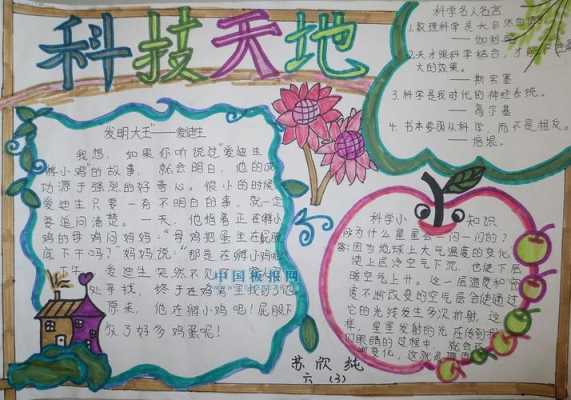 科技天地
发明大王"——爱迪生
我想，如果你听说过"爱迪生
孵小鸡"的故事，就会明白，他的成
功源于强烈的好奇心。很小的时候
爱迪生只要一有不明白的事，就一定
要追问清楚。一天，他指着正在孵小
鸡的母鸡问妈妈："母鸡把蛋坐在屁股
底下干吗？"妈妈说："那是在孵小鸡呢
爱迪生突然不见了
处寻找，终于在鸡窝里找到了他
原来，他在孵小鸡呢！屁股下
放了好多鸡蛋呢！
中国板报网
科学名人名言
1.数理科学是大自然
——伽利略
2.天才跟科学结合，才
大的效果。
——斯宾塞
3.科学是我时代的神经系统。
——高尔基
4.书本要面从科学，而不是相反。
——培根。
科学小知识
为什么星星会一闪一闪的？
答：因为地球上大气温度的变化，
使上层冷空气下沉，也使下层
暖空气上升。这一层温度和密
度不断改变的空气层会使通过
它的光线发生多次折射，这
样，星星发射的光在传到
们眼睛的过程中，就会
变化，这就
苏欣纯
六（3）